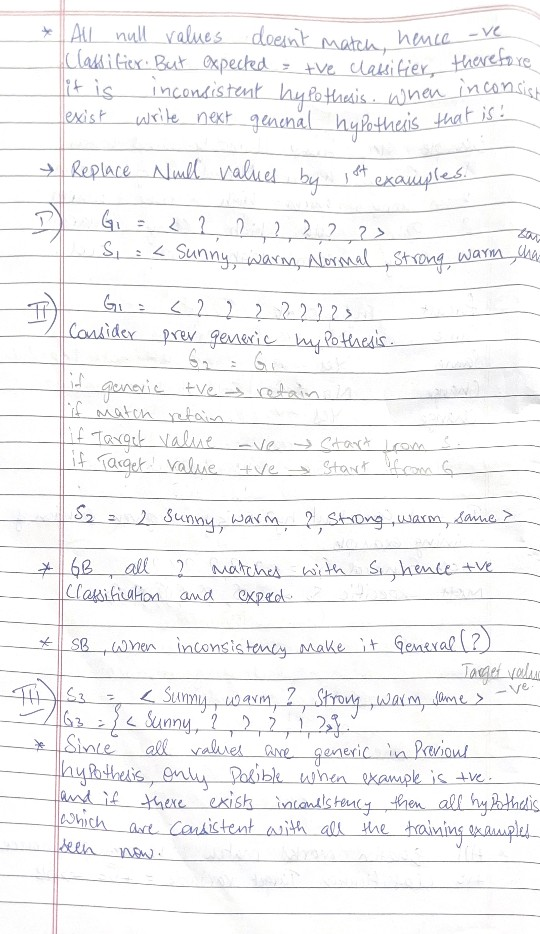 * All null values doesn't match, hence -ve
Classifier. But expected = +ve classifier, therefore
it is inconsistent hypothesis. When inconsist
exist write next general hypothesis that is:
→ Replace Null values by 1st examples.
I) G1 = < ?, ?, ?, ?, ?, ?>
S1 = < Sunny, warm, Normal, Strong, warm,
II) G1 = < ? ? ? ? ? ? ? >
Consider prev generic hypothesis.
G2 = G1.
if generic +ve → retain
if match retain
if Target value -ve → Start from S.
if Target value +ve → Start from G
S2 = 2 Sunny, warm, ?, Strong, warm, same >
* GB all ? matches with S1, hence +ve
Classification and expecd.
* SB, when inconsistency make it General (?)
Target valu
III) S3 = < Sunny, warm, ?, Strong, warm, same > -ve.
G3 = { < Sunny, ?, ?, ?, ?, ?>}.
* Since all values are generic in Previous
hypothesis, only Posible when example is +ve.
and if there exists inconsistency, then all hypothesis
which are consistent with all the training examples
seen now.